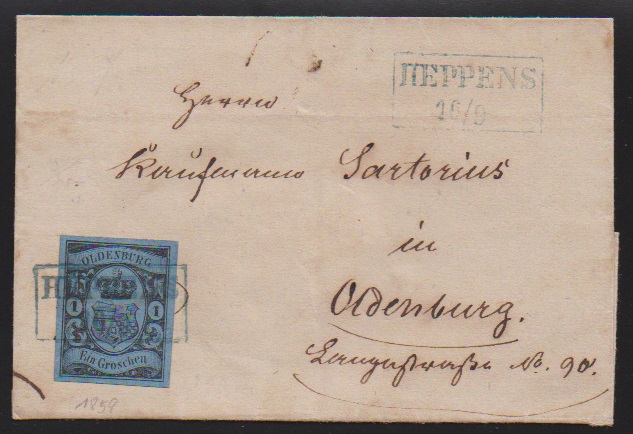 HEPPENS
16/9
Herrn
Kaufmann Sartorius
in
Oldenburg.
Langestraße No. 90.
OLDENBURG
1 1
Ein Groschen
1859